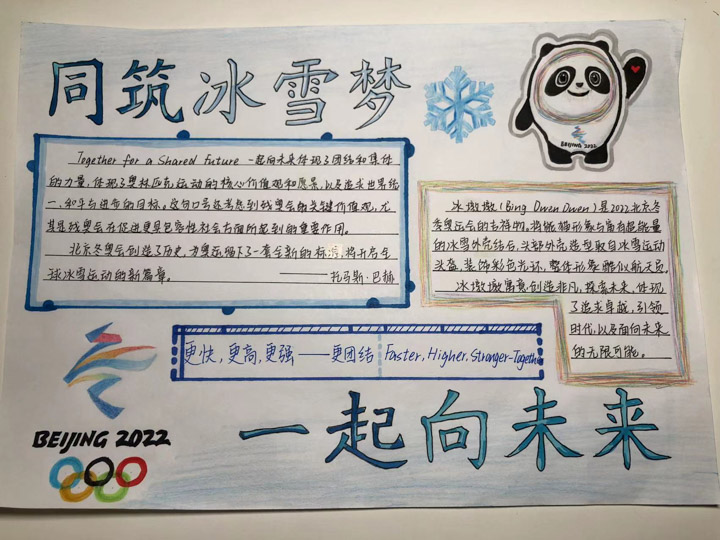 同筑冰雪梦
BEIJING 2022
Together for a Shared Future 一起向未来体现了团结和集体
的力量,体现了奥林匹克运动的核心价值观和愿景,以及追求世界统
一、和平与进步的目标。这句口号还考虑到残奥会的关键价值观,尤
其是残奥会在促进更具包容性社会方面所起到的重要作用。
北京冬奥会创造了历史,为奥运留下了一套全新的标准,将开启全
球冰雪运动的新篇章。 ——托马斯·巴赫
冰墩墩(Bing Dwen Dwen)是2022北京冬
季奥运会的吉祥物。将熊猫形象与富有超能量
的冰晶外壳结合,头部外壳造型取自冰雪运动
头盔,装饰彩色光环,整体形象酷似航天员。
冰墩墩寓意创造非凡,探索未来,体现
了追求卓越,引领
时代,以及面向未来
的无限可能。
更快,更高,更强——更团结 Faster, Higher, Stronger-Together
BEIJING 2022
一起向未来